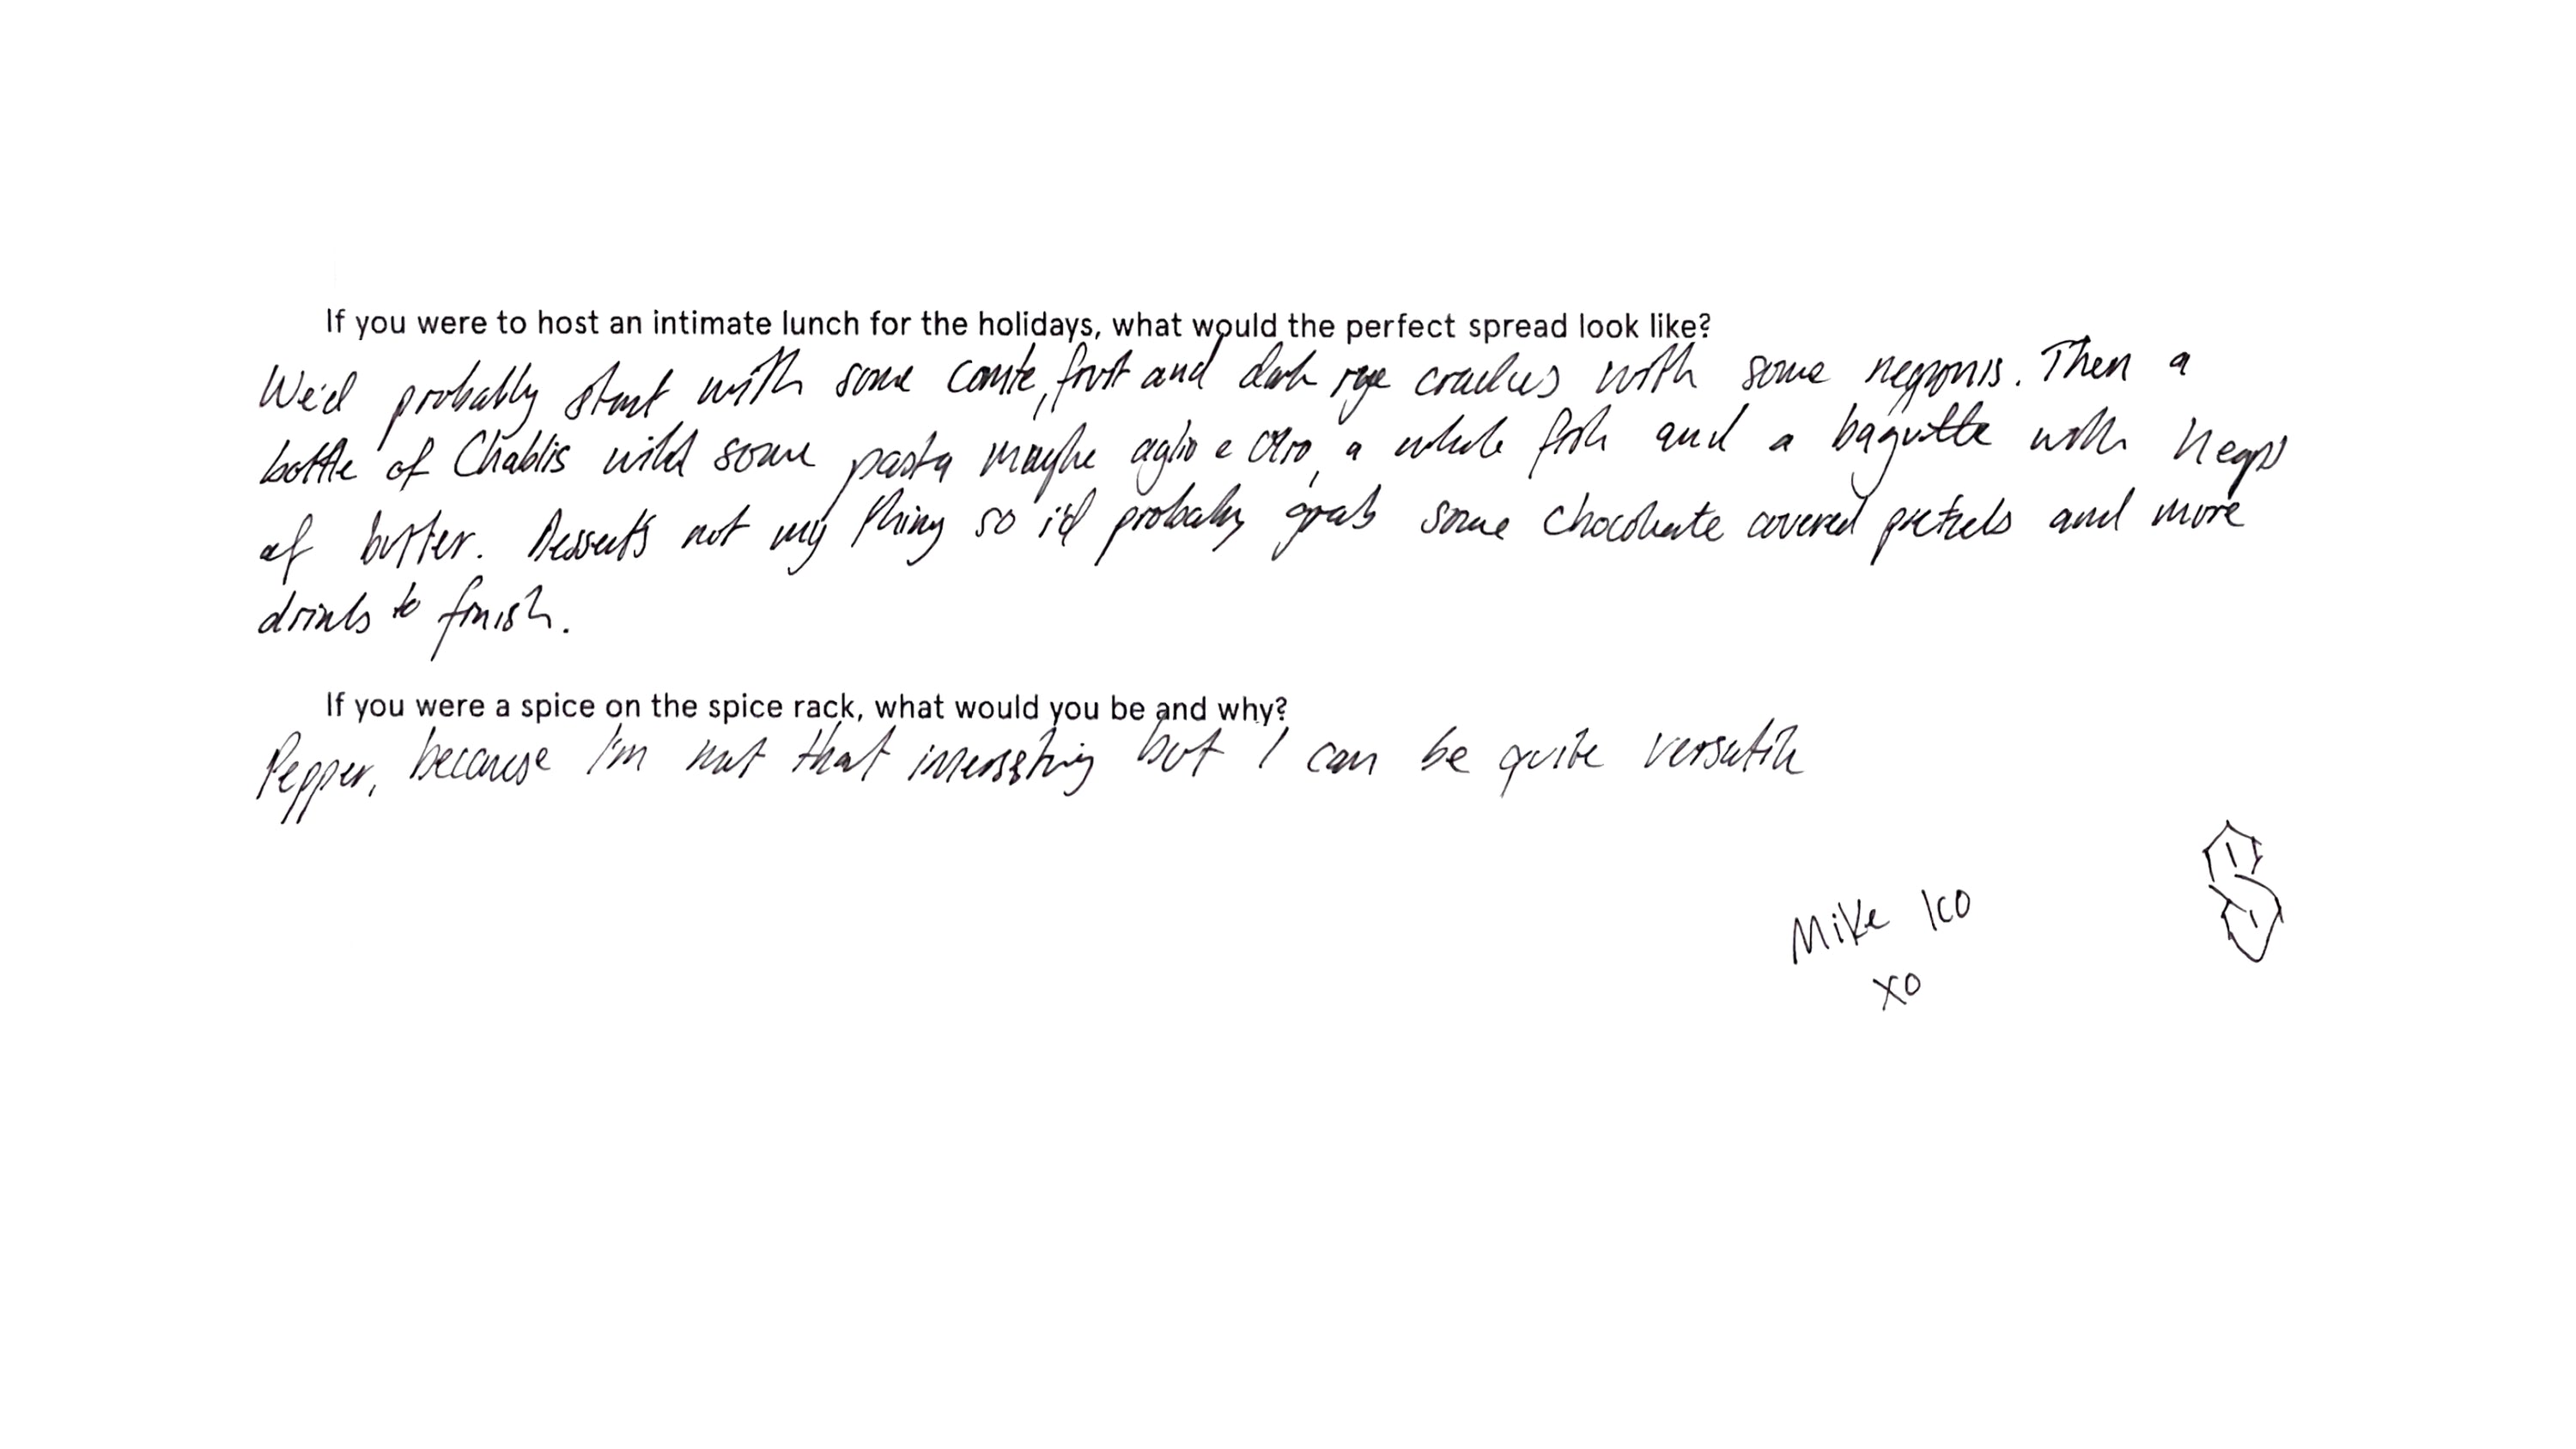 If you were to host an intimate lunch for the holidays, what would the perfect spread look like?
We'd probably start with some comte, fruit and dark rye crackers with some negronis. Then a
bottle of Chablis with some pasta maybe aglio e olio, a whole fish and a baguette with heaps
of butter. Dessert's not my thing so i'd probably grab some chocolate covered pretzels and more
drinks to finish.
If you were a spice on the spice rack, what would you be and why?
Pepper, because I'm not that interesting but I can be quite versatile
Mike Ico
xo